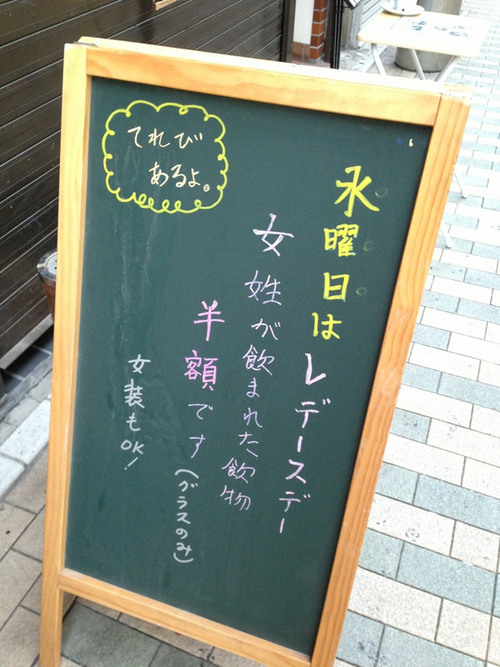 永曜日は
レデースデー
女姓が飲まれた飲物
半額です(グラスのみ)
女装もOK!
てれび
あるよ。